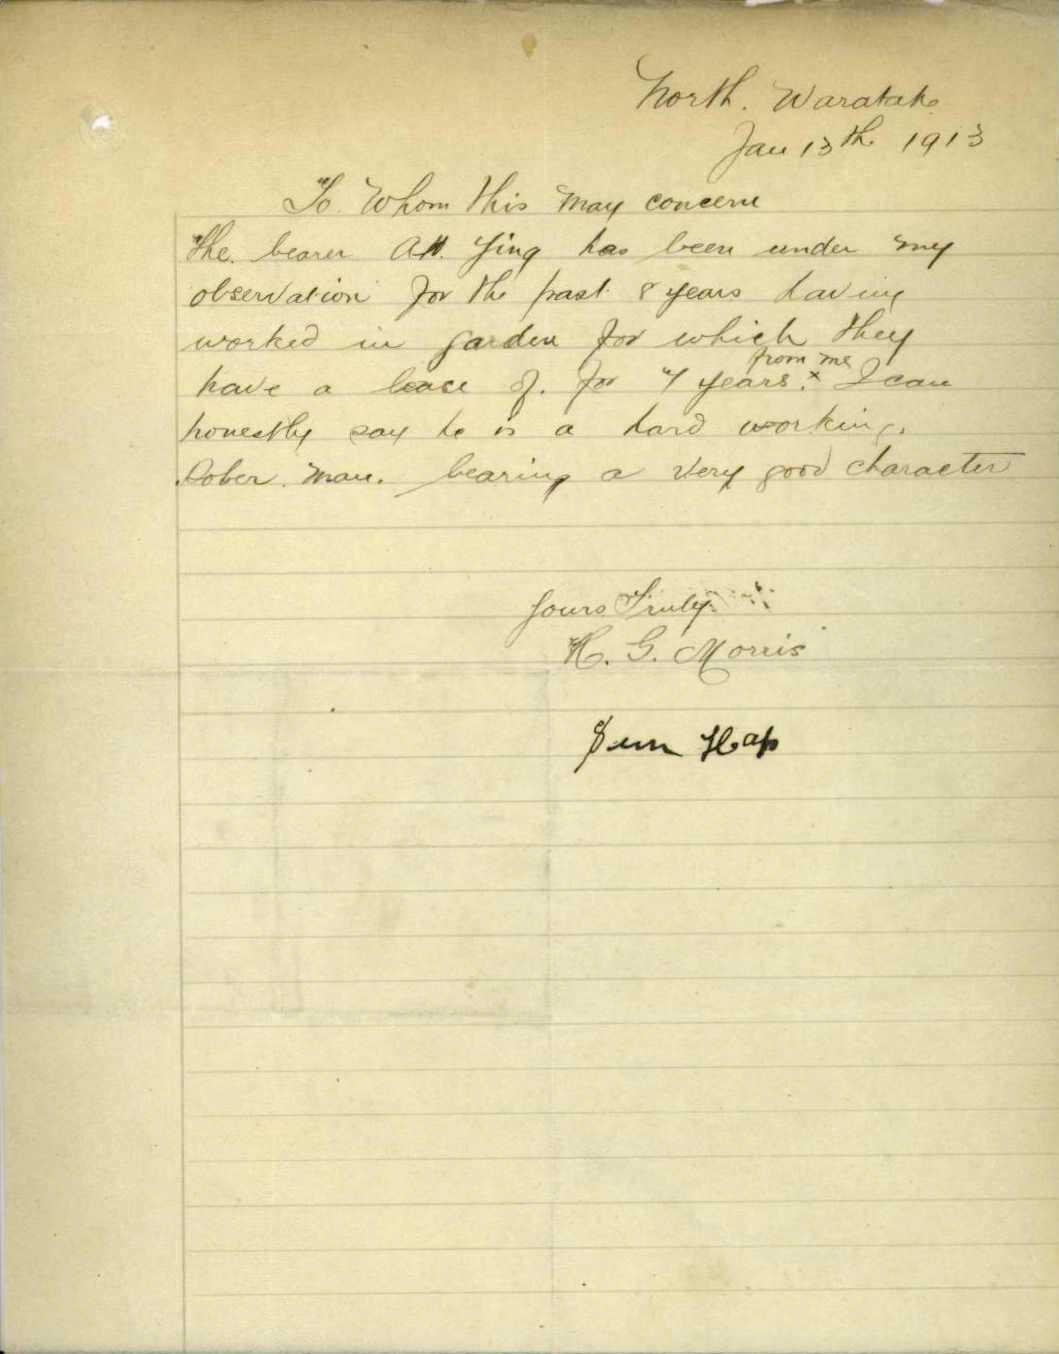 North. Waratah.
Jan 13th. 1913
To. Whom this may concern
the. bearer AH. Ying has been under my
observation for the past 8 years having
worked in garden for which they
from me
have a lease of. for 7 years. x I can
honestly say he is a hard working.
Sober. man. bearing a very good character
Yours Truly
H. G. Morris
Hap